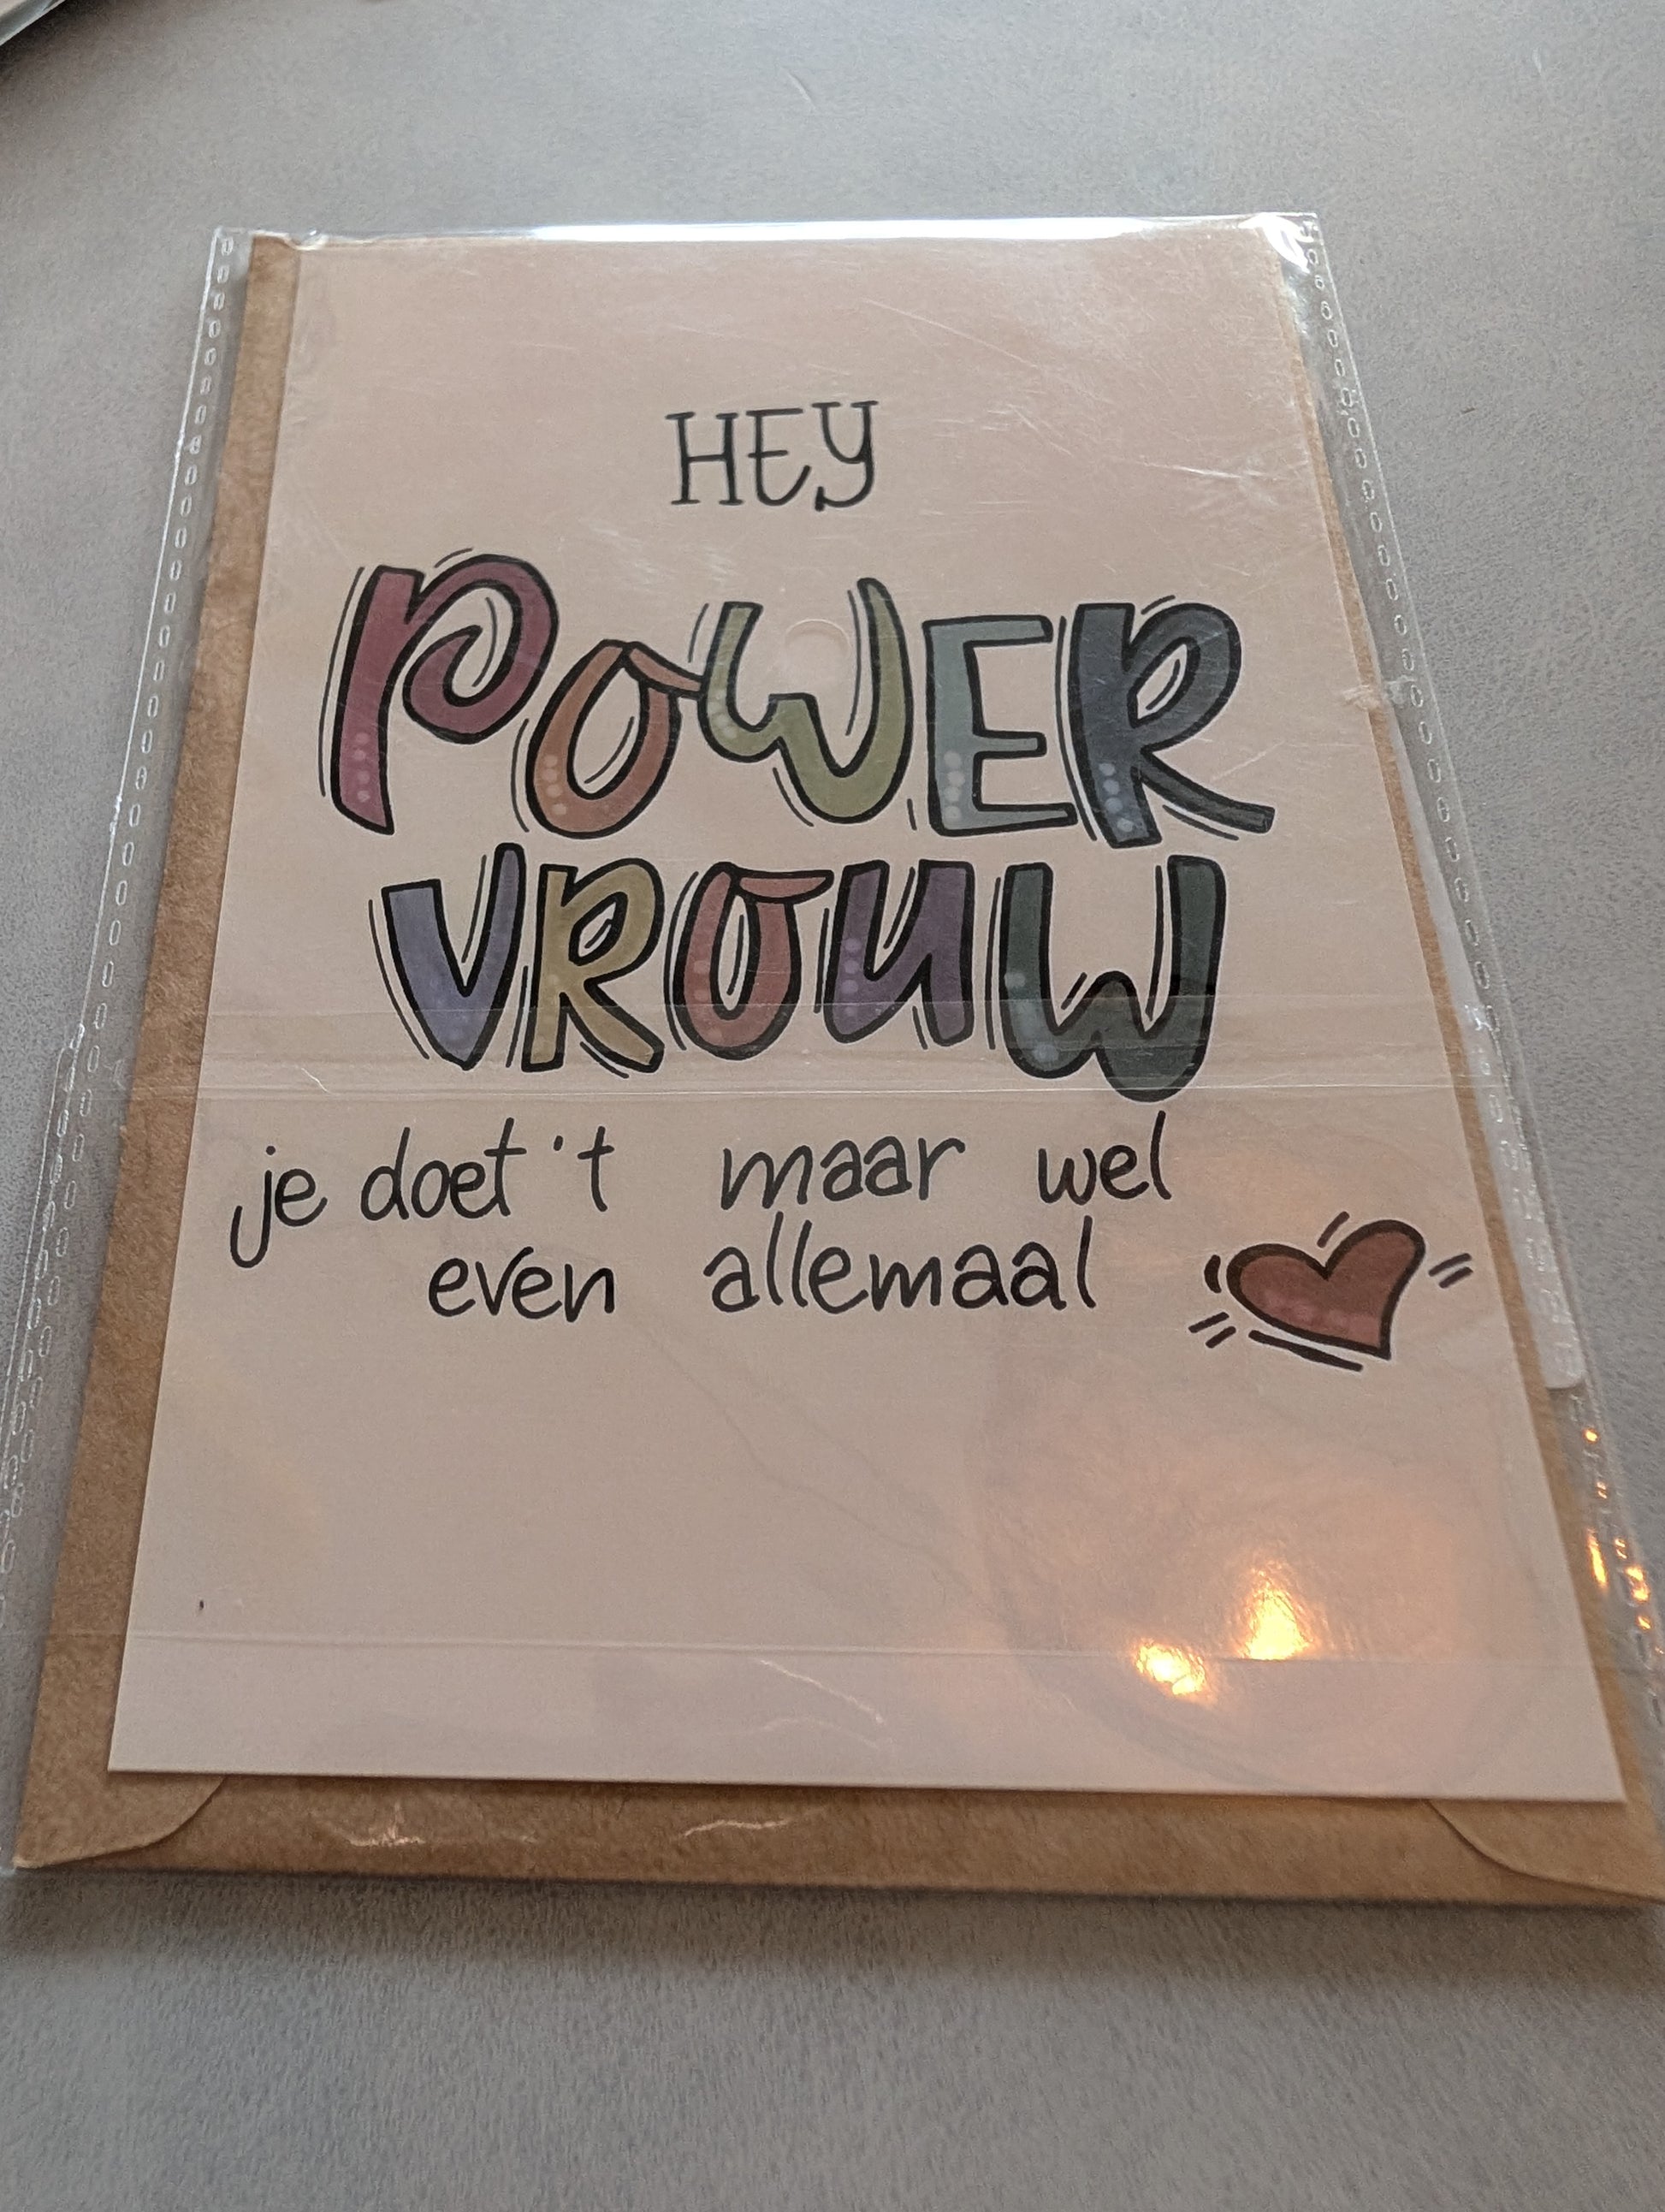 HEY
POWER
VROUW
je doet 't maar wel
even allemaal